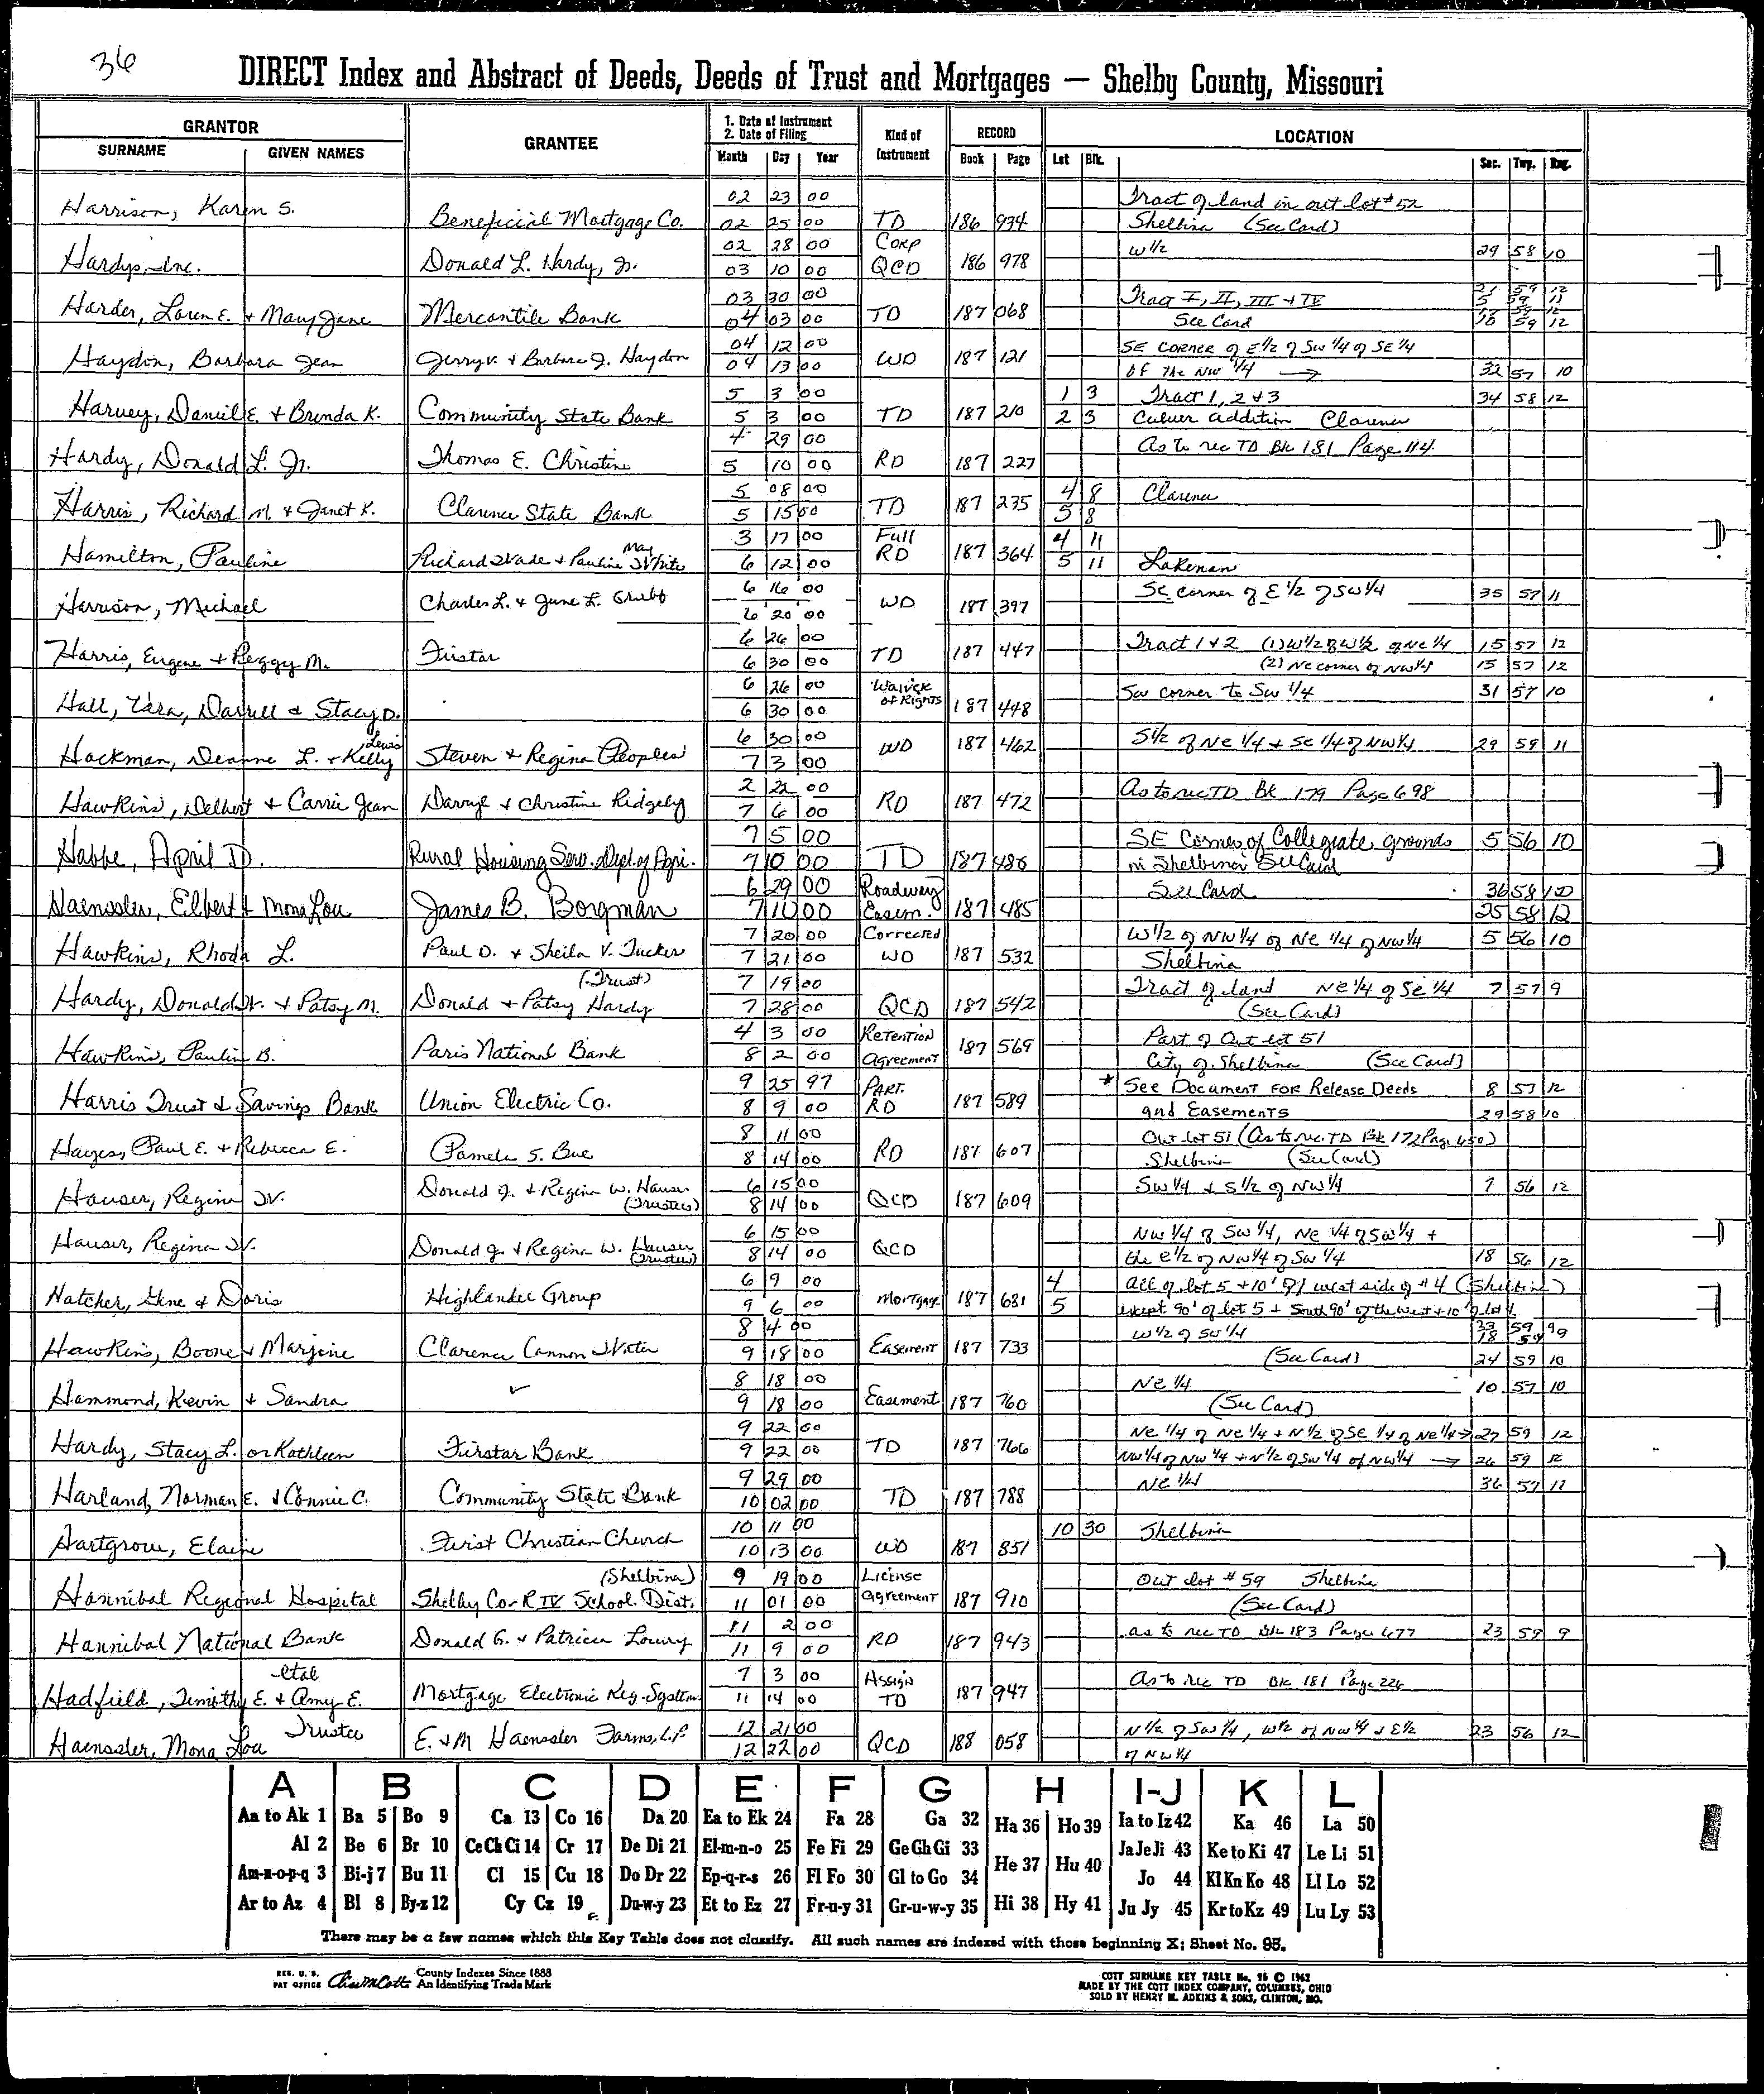 36
DIRECT Index and Abstract of Deeds, Deeds of Trust and Mortgages — Shelby County, Missouri
GRANTOR GRANTEE 1. Date of Instrument 2. Date of Filing Kind of Instrument RECORD LOCATION
SURNAME GIVEN NAMES Month Day Year Book Page Lot Blk. Sec. Twp. Rng.
Harrison, Karen S. Beneficial Mortgage Co. 02 23 00 TD 186 934 Tract of land in out lot #52
02 25 00 Shelbina (See Card)
Hardys, Inc. Donald L. Hardy, Jr. 02 28 00 Corp QCD 186 978 W 1/2 29 58 10
03 10 00
Harder, Loren E. + Mary Jane Mercantile Bank 03 30 00 TD 187 068 Tract I, II, III + IV 21 59 12
04 03 00 See Card 59 12
Haydon, Barbara Jean Jerry V. + Barbara J. Haydon 04 12 00 WD 187 121 SE CORNER of E 1/2 of SW 1/4 of SE 1/4
04 13 00 of the NW 1/4 → 32 57 10
Harvey, Daniel E. + Brenda K. Community State Bank 5 3 00 TD 187 210 1 3 Tract 1, 2 + 3 34 58 12
5 3 00 2 3 Culver addition Clarence
Hardy, Donald L. Jr. Thomas E. Christine 4 29 00 RD 187 227 As to rec TD Bk 181 Page 114
5 10 00
Harris, Richard M. + Janet K. Clarence State Bank 5 08 00 TD 187 235 4 8 Clarence
5 15 00 5 8
Hamilton, Pauline Richard Wade + Pauline May White 3 17 00 Full RD 187 364 4 11
6 12 00 5 11 Lakenan
Harrison, Michael Charles L. + June L. Grubb 6 16 00 WD 187 397 SE corner of E 1/2 of SW 1/4 35 57 11
6 20 00
Harris, Eugene + Peggy M. Firstar 6 26 00 TD 187 447 Tract 1 + 2 (1) W 1/2 of W 1/2 of NE 1/4 15 57 12
6 30 00 (2) NE corner of NW 1/4 15 57 12
Hall, Tera, Darrell & Stacy D. 6 26 00 Waiver of Rights 187 448 SW corner to SW 1/4 31 57 10
6 30 00
Hackman, Deanne L. + Kelly Lewis Steven + Regina Peoples 6 30 00 WD 187 462 S 1/2 of NE 1/4 + SE 1/4 of NW 1/4 29 59 11
7 3 00
Hawkins, Delbert + Carrie Jean Darryl + Christine Ridgely 2 22 00 RD 187 472 As to rec TD Bk 179 Page 698
7 6 00
Habbe, April D. Rural Housing Serv. Dept. of Agri. 7 5 00 TD 187 486 SE Corner of Collegiate grounds 5 56 10
7 10 00 in Shelbina See Card
Haenssler, Elbert + Mona Lou James B. Borgman 6 29 00 Roadway Easem. 187 485 See Card 36 58 12
7 10 00 25 58 12
Hawkins, Rhoda L. Paul D. + Sheila V. Tucker 7 20 00 Corrected WD 187 532 W 1/2 of NW 1/4 of NE 1/4 of NW 1/4 5 56 10
7 21 00 Shelbina
Hardy, Donald W. + Patsy M. Donald + Patsy Hardy (Trust) 7 19 00 QCD 187 542 Tract of land NE 1/4 of SE 1/4 7 57 9
7 28 00 (See Card)
Hawkins, Paulin B. Paris National Bank 4 3 00 Retention Agreement 187 569 Part of Out Lot 51
8 2 00 City of Shelbina (See Card)
Harris Trust & Savings Bank Union Electric Co. 9 25 97 Part. RD 187 589 * See Document FOR Release Deeds 8 57 12
8 9 00 and Easements 29 58 10
Hayes, Paul E. + Rebecca E. Pamela S. Bue 8 11 00 RD 187 607 Out lot 51 (As to rec. TD Bk 172 Page 650)
8 14 00 Shelbina (See Card)
Hauser, Regina W. Donald J. + Regina W. Hauser (Trustees) 6 15 00 QCD 187 609 SW 1/4 + S 1/2 of NW 1/4 7 56 12
8 14 00
Hauser, Regina W. Donald J. + Regina W. Hauser (Trustees) 6 15 00 QCD NW 1/4 of SW 1/4, NE 1/4 of SW 1/4 +
8 14 00 the E 1/2 of NW 1/4 of SW 1/4 18 56 12
Hatcher, Gene & Doris Highlander Group 6 9 00 Mortgage 187 681 4 All of lot 5 + 10' of west side of #4 (Shelbina)
9 6 00 5 except 90' of lot 5 + South 90' of the West + 10' of lot 4
Hawkins, Boone + Marjorie Clarence Cannon Water 8 4 00 Easement 187 733 W 1/2 of SW 1/4 33 59 9
9 18 00 (See Card) 18 59 9
24 59 10
Hammond, Kevin + Sandra ✓ 8 18 00 Easement 187 760 NE 1/4 10 57 10
9 18 00 (See Card)
Hardy, Stacy L. or Kathleen Firstar Bank 9 22 00 TD 187 766 NE 1/4 of NE 1/4 + N 1/2 of SE 1/4 of NE 1/4 → 27 59 12
9 22 00 NW 1/4 of NW 1/4 + N 1/2 of SW 1/4 of NW 1/4 → 26 59 12
Harland, Norman E. & Connie C. Community State Bank 9 29 00 TD 187 788 NE 1/4 36 57 12
10 02 00
Hartgrove, Elaine First Christian Church 10 11 00 WD 187 851 10 30 Shelbina
10 13 00
Hannibal Regional Hospital Shelby Co-R IV School Dist. (Shelbina) 9 19 00 License Agreement 187 910 Out Lot #59 Shelbina
11 01 00 (See Card)
Hannibal National Bank Donald G. + Patricia Lowry 11 2 00 RD 187 943 as to rec TD Bk 183 Page 677 23 59 9
11 9 00
Hadfield, Timothy E. & Amy E. etal Mortgage Electronic Reg. Systems 7 3 00 Assign TD 187 947 As to rec TD Bk 181 Page 226
11 14 00
Haenssler, Mona Lou Trustee E. & M Haenssler Farms, L.P. 12 21 00 QCD 188 058 N 1/2 of SW 1/4, W 1/2 of NW 1/4 & E 1/2 23 56 12
12 22 00 of NW 1/4
A B C D E F G H I-J K L
Aa to Ak 1 Ba 5 Bo 9 Ca 13 Co 16 Da 20 Ea to Ek 24 Fa 28 Ga 32 Ha 36 Ho 39 Ia to Iz 42 Ka 46 La 50
Al 2 Be 6 Br 10 Ce Ch Ci 14 Cr 17 De Di 21 El-m-n-o 25 Fe Fi 29 Ge Gh Gi 33 He 37 Hu 40 Ja Je Ji 43 Ke to Ki 47 Le Li 51
Am-n-o-p-q 3 Bi-j 7 Bu 11 Cl 15 Cu 18 Do Dr 22 Ep-q-r-s 26 Fl Fo 30 Gl to Go 34 Jo 44 Kl Kn Ko 48 Ll Lo 52
Ar to Az 4 Bl 8 By-z 12 Cy Cz 19 Du-w-y 23 Et to Ez 27 Fr-u-y 31 Gr-u-w-y 35 Hi 38 Hy 41 Ju Jy 45 Kr to Kz 49 Lu Ly 53
There may be a few names which this Key Table does not classify. All such names are indexed with those beginning X; Sheet No. 95.
REG. U. S. PAT OFFICE County Indexes Since 1888 An Identifying Trade Mark
COTT SURNAME KEY TABLE No. 96 © 1962
MADE BY THE COTT INDEX COMPANY, COLUMBUS, OHIO
SOLD BY HENRY M. ADKINS & SONS, CLINTON, MO.